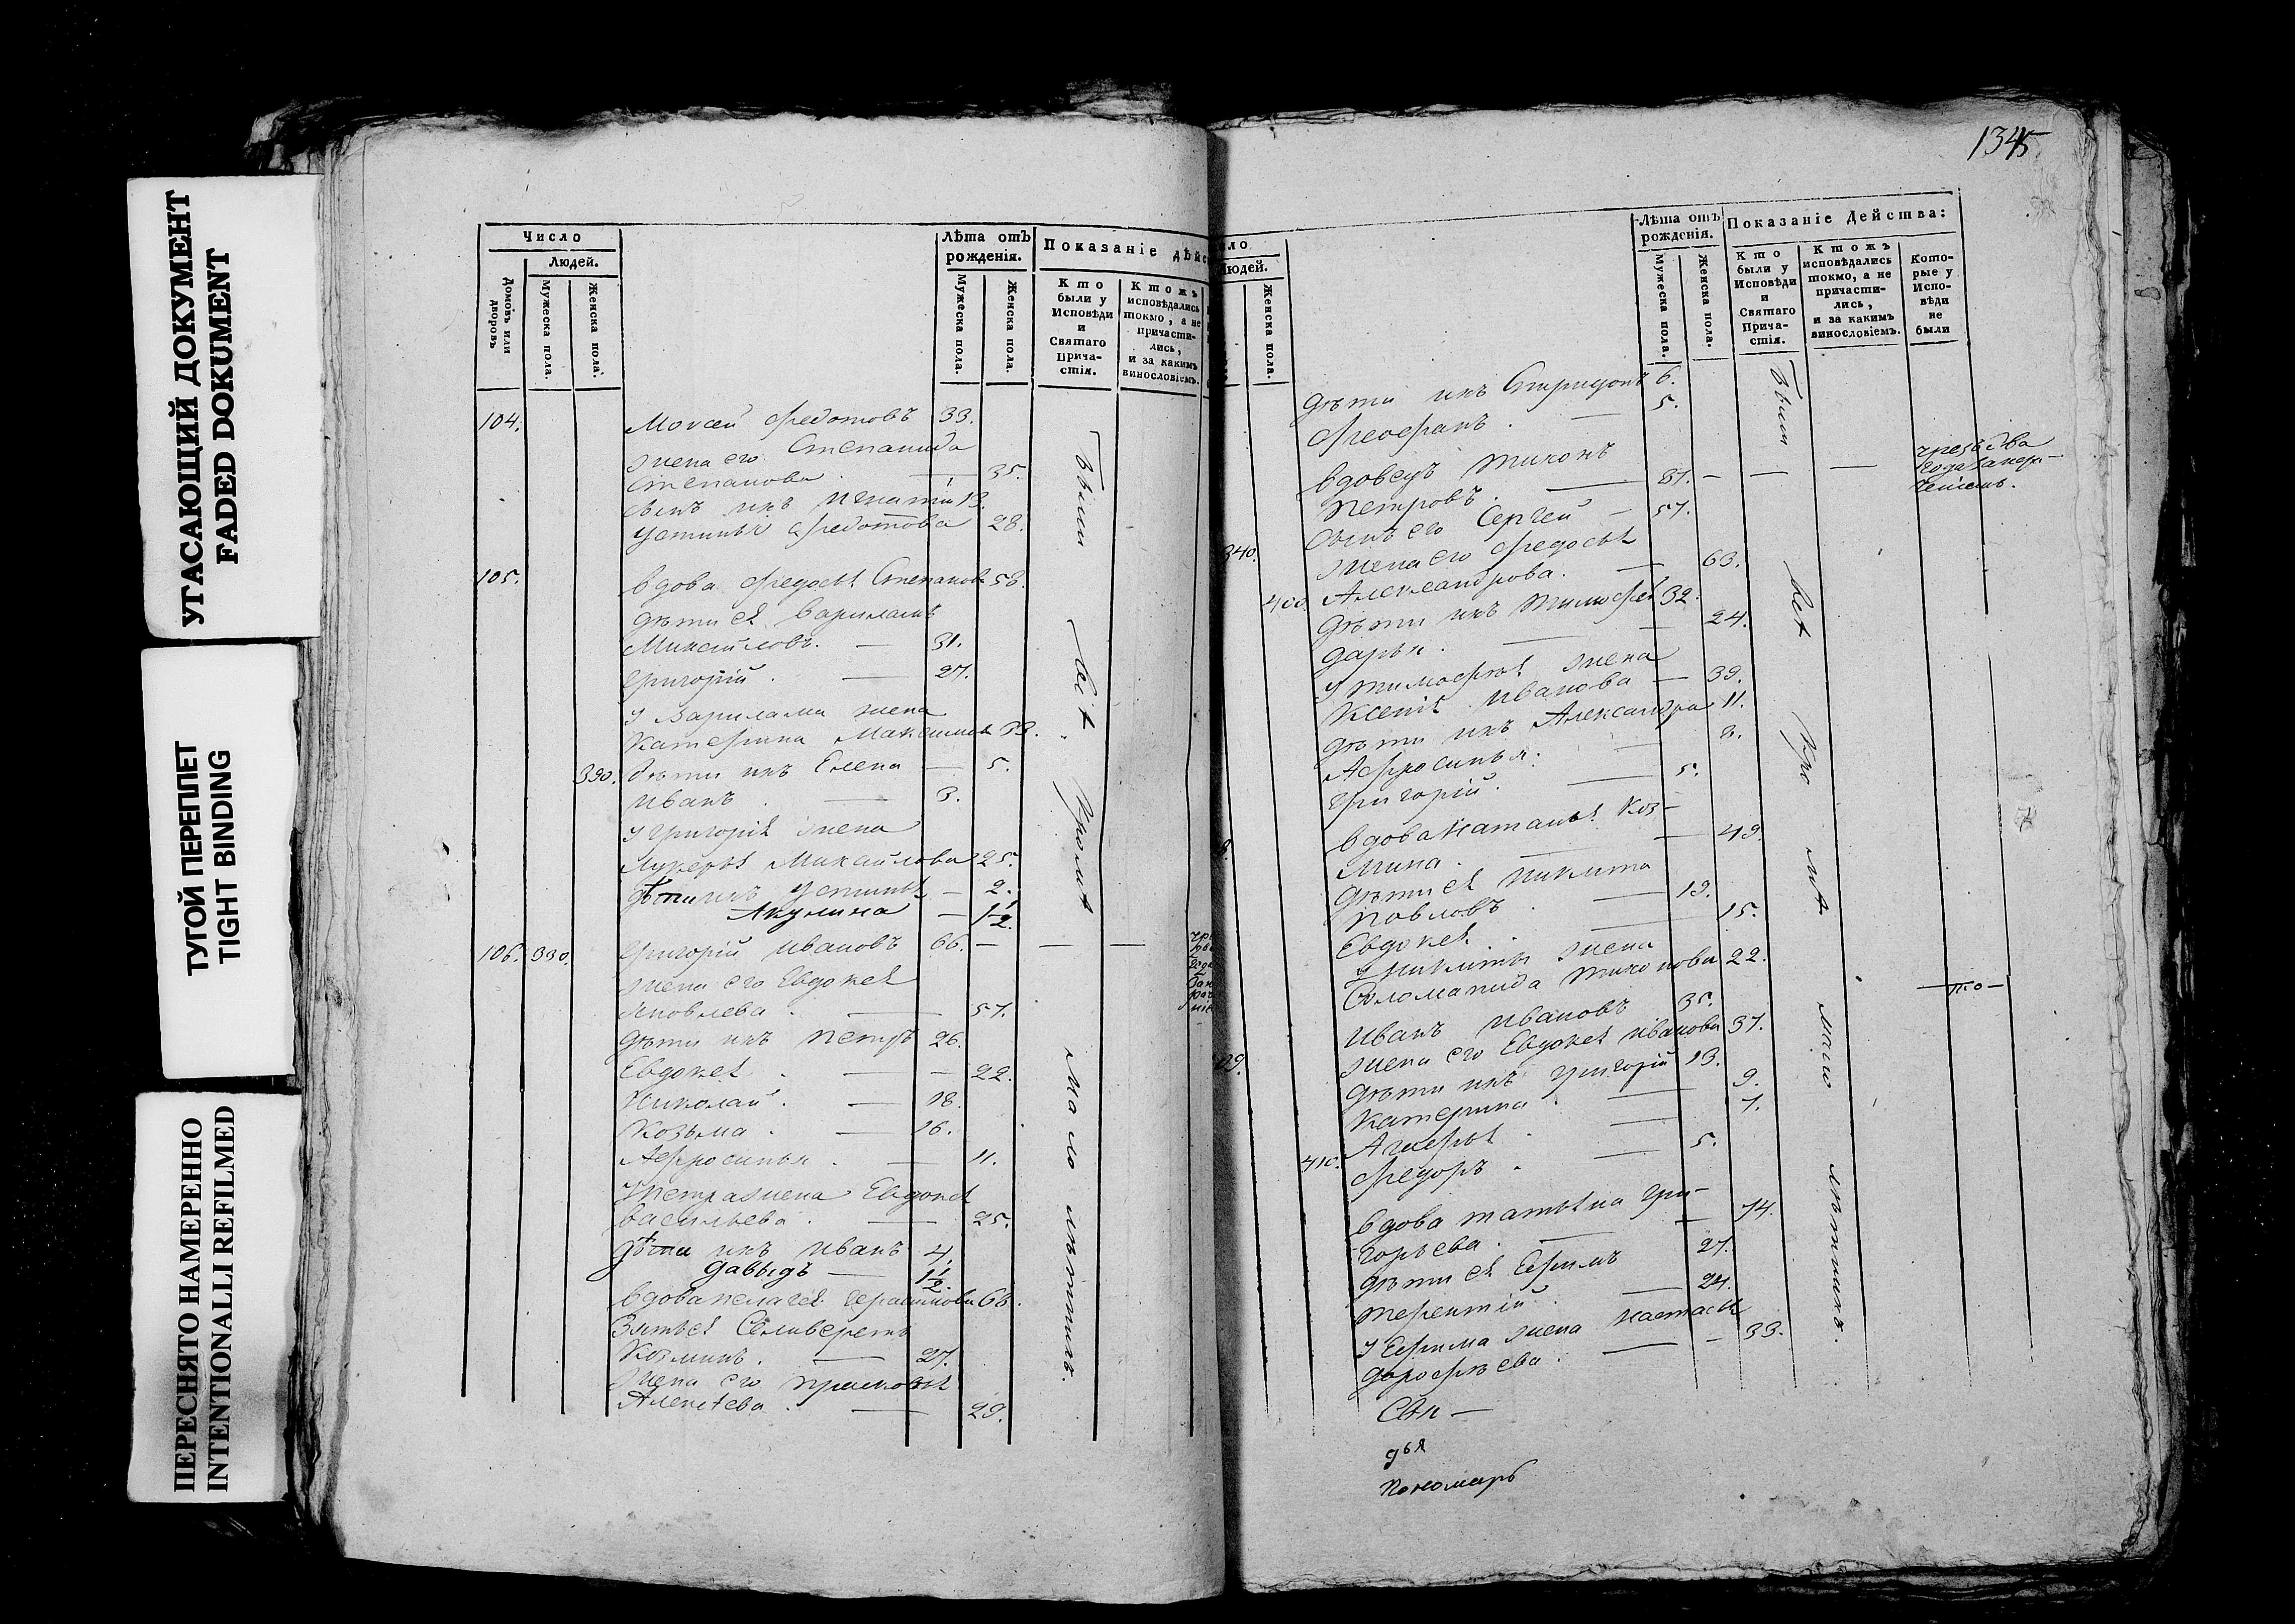 УГАСАЮЩИЙ ДОКУМЕНТ
FADED DOKUMENT
ТУГОЙ ПЕРЕПЛЕТ
TIGHT BINDING
ПЕРЕСНЯТО НАМЕРЕННО
INTENTIONALLI REFILMED
Число
Людей.
Домовъ или дворовъ
Мужеска пола.
Женска пола.
Лѣта отъ рожденія.
Мужеска пола.
Женска пола.
Показаніе дѣйс
Кто были у Исповѣди и Святаго Прича-стія.
Ктожъ исповѣдались токмо, а не причасти-лись, и за какимъ винословіемъ.
104. Моисей Федотовъ 33.
жена его Степанида
Степанова 35.
сынъ ихъ Игнатій 13.
Устинья Федотова 28.
105. вдова Федосья Степанова 58.
дѣти ея Варламъ
Михайловъ. 31.
Григорій 27.
у Варлама жена
Катерина Максимова 33.
390. дѣти ихъ Елена 5.
Иванъ 3.
у Григорія жена
Лукерья Михайлова 25.
дѣти ихъ Устинья 2.
Акулина 1 1/2.
106. 330. Григорій Ивановъ 66.
жена его Евдокея
Яковлева 57.
дѣти ихъ Петръ 26.
Евдокея 22.
Николай 18.
Козьма 16.
Афросинья 11.
у Петра жена Евдокея
Васильева 25.
дѣти ихъ Иванъ 4.
Давыдъ 1 1/2.
вдова Пелагея Герасимова 68.
Зять ея Селиверстъ
Козминъ. 27.
жена его Прасковья
Алексѣева 29.
Были всѣ кромѣ малолѣтнихъ.
1345
ло
Людей.
Женска пола.
Лѣта отъ рожденія.
Мужеска пола.
Женска пола.
Показаніе Действа:
Кто были у Исповѣди и Святаго Прича-стія.
Ктожъ исповѣдались токмо, а не причасти-лись, и за какимъ винословіемъ.
Кото-рые у Испо-вѣди не были
дѣти ихъ Спиридонъ 6.
Феофанъ 5.
вдовецъ Тихонъ
Петровъ 81.
чрезъ два
года
340. сынъ его Сергей 57.
жена его Федосья
400. Александрова. 63.
дѣти ихъ Тимофей 32.
Дарья 24.
у Тимофея жена
Ксенія Иванова 39.
дѣти ихъ Александра 11.
Афросинья 8.
Григорій 5.
вдова Наталья Коз-
мина 49.
дѣти ея Никита
Павловъ 19.
Евдокея 15.
у Никиты жена
Соломанида Тихонова 22.
Иванъ Ивановъ 35.
—то—
жена его Евдокея Иванова 37.
дѣти ихъ Григорій 13.
Катерина 9.
Агафья 7.
410. Федоръ 5.
вдова Татьяна Гри-
горьева 74.
дѣти ея Ефимъ 27.
Терентій 24.
у Ефима жена Настасья
Дорофеева 33.
Были всѣ кромѣ малолѣтнихъ.
Свя—
дья
Пономарь